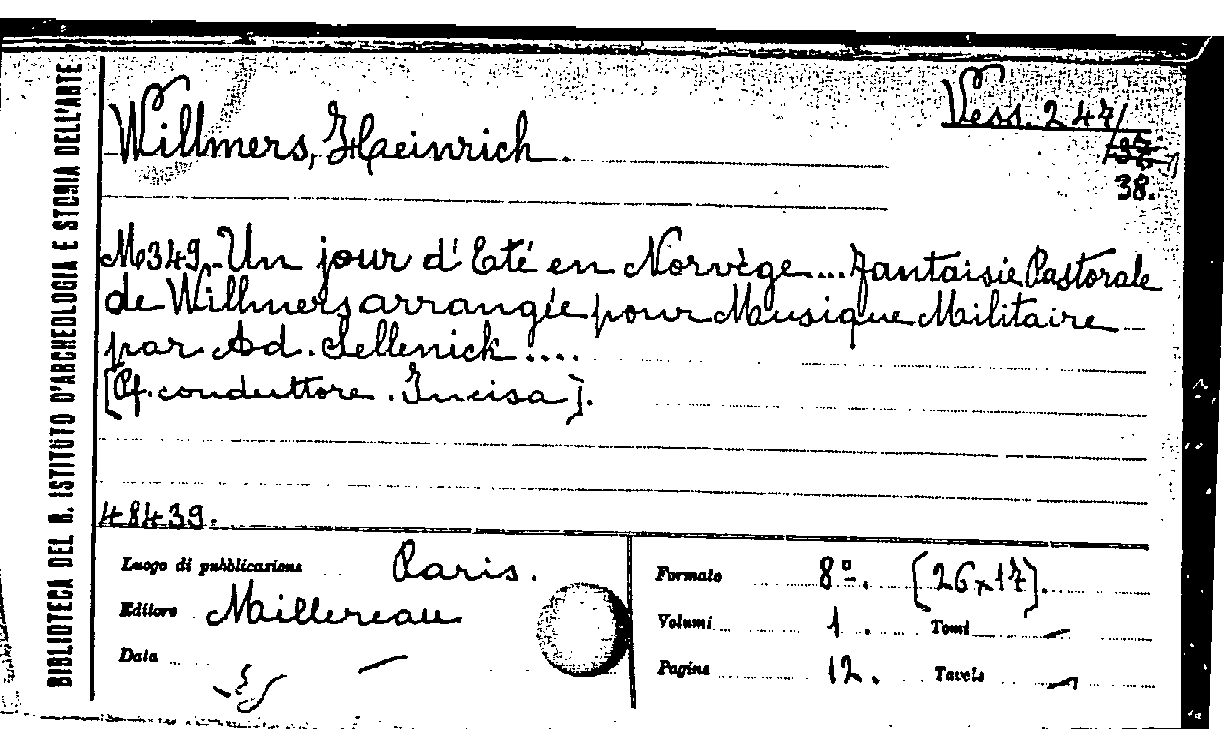 BIBLIOTECA DEL R. ISTITUTO D'ARCHEOLOGIA E STORIA DELL'ARTE
Willmers, Heinrich.
Vess. 247/
38.
M349. Un jour d'Eté en Norvège... Fantaisie Pastorale
de Willmers arrangée pour Musique Militaire
par Ad. Sellenick ....
[Pf. conduttore. Incisa].
48439.
Luogo di pubblicazione Paris.
Editore Maillereau
Data —
Formato 8º. [26x17].
Volumi 1. Tomi —
Pagine 12. Tavole —